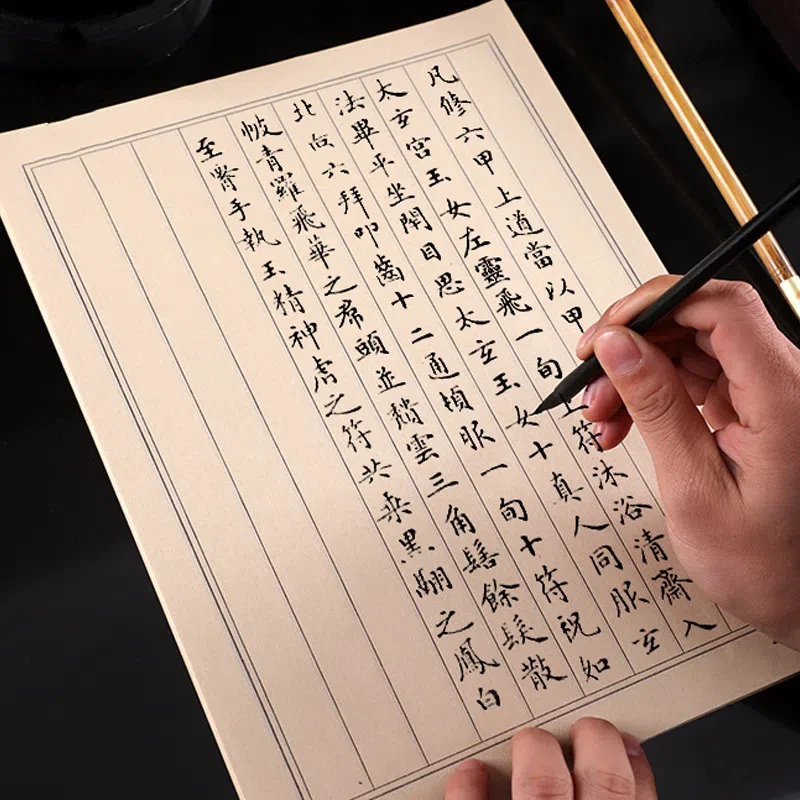 凡修六甲上道當以甲
太玄宮玉女左靈飛一旬上符沐浴清齋入
法畢平坐閉目思太玄玉女十真人同服玄
北向六拜叩齒十二通頓服一旬十符祝如
帔青羅飛華之帬頭並頹雲三角髻餘髮散
至要手執玉精神虎之符共乘黑翮之鳳白